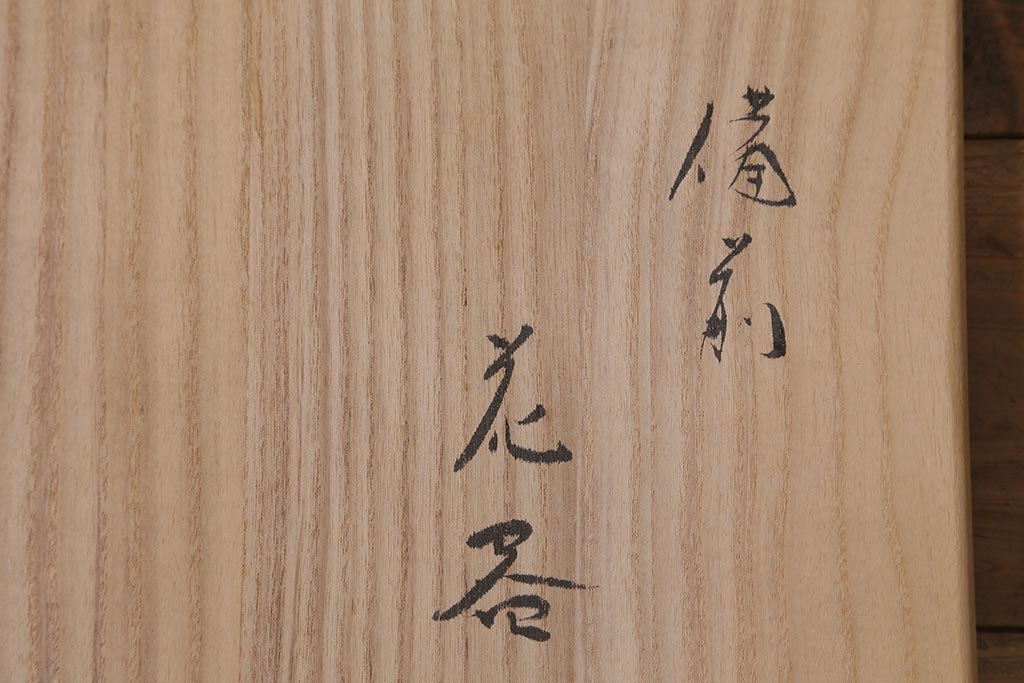 備前
花器